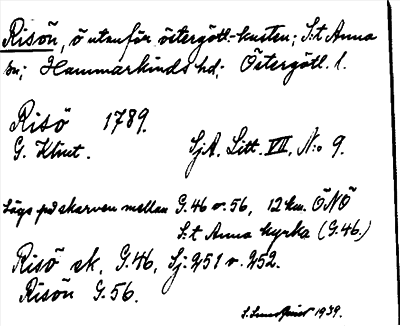 Risön, ö utanför östergötl.-kusten; S:t Anna
sn; Hammarkinds hd; Östergötl. l.
Risö 1789.
G. Klint. SjA. Litt. VII, N:o 9.
Lägs på skarven mellan G.46 o. 56, 12 km. ÖNÖ
S:t Anna kyrka (G.46.)
Risö sk. G.46, Sj: 251 o. 252.
Risön G.56.
1939.